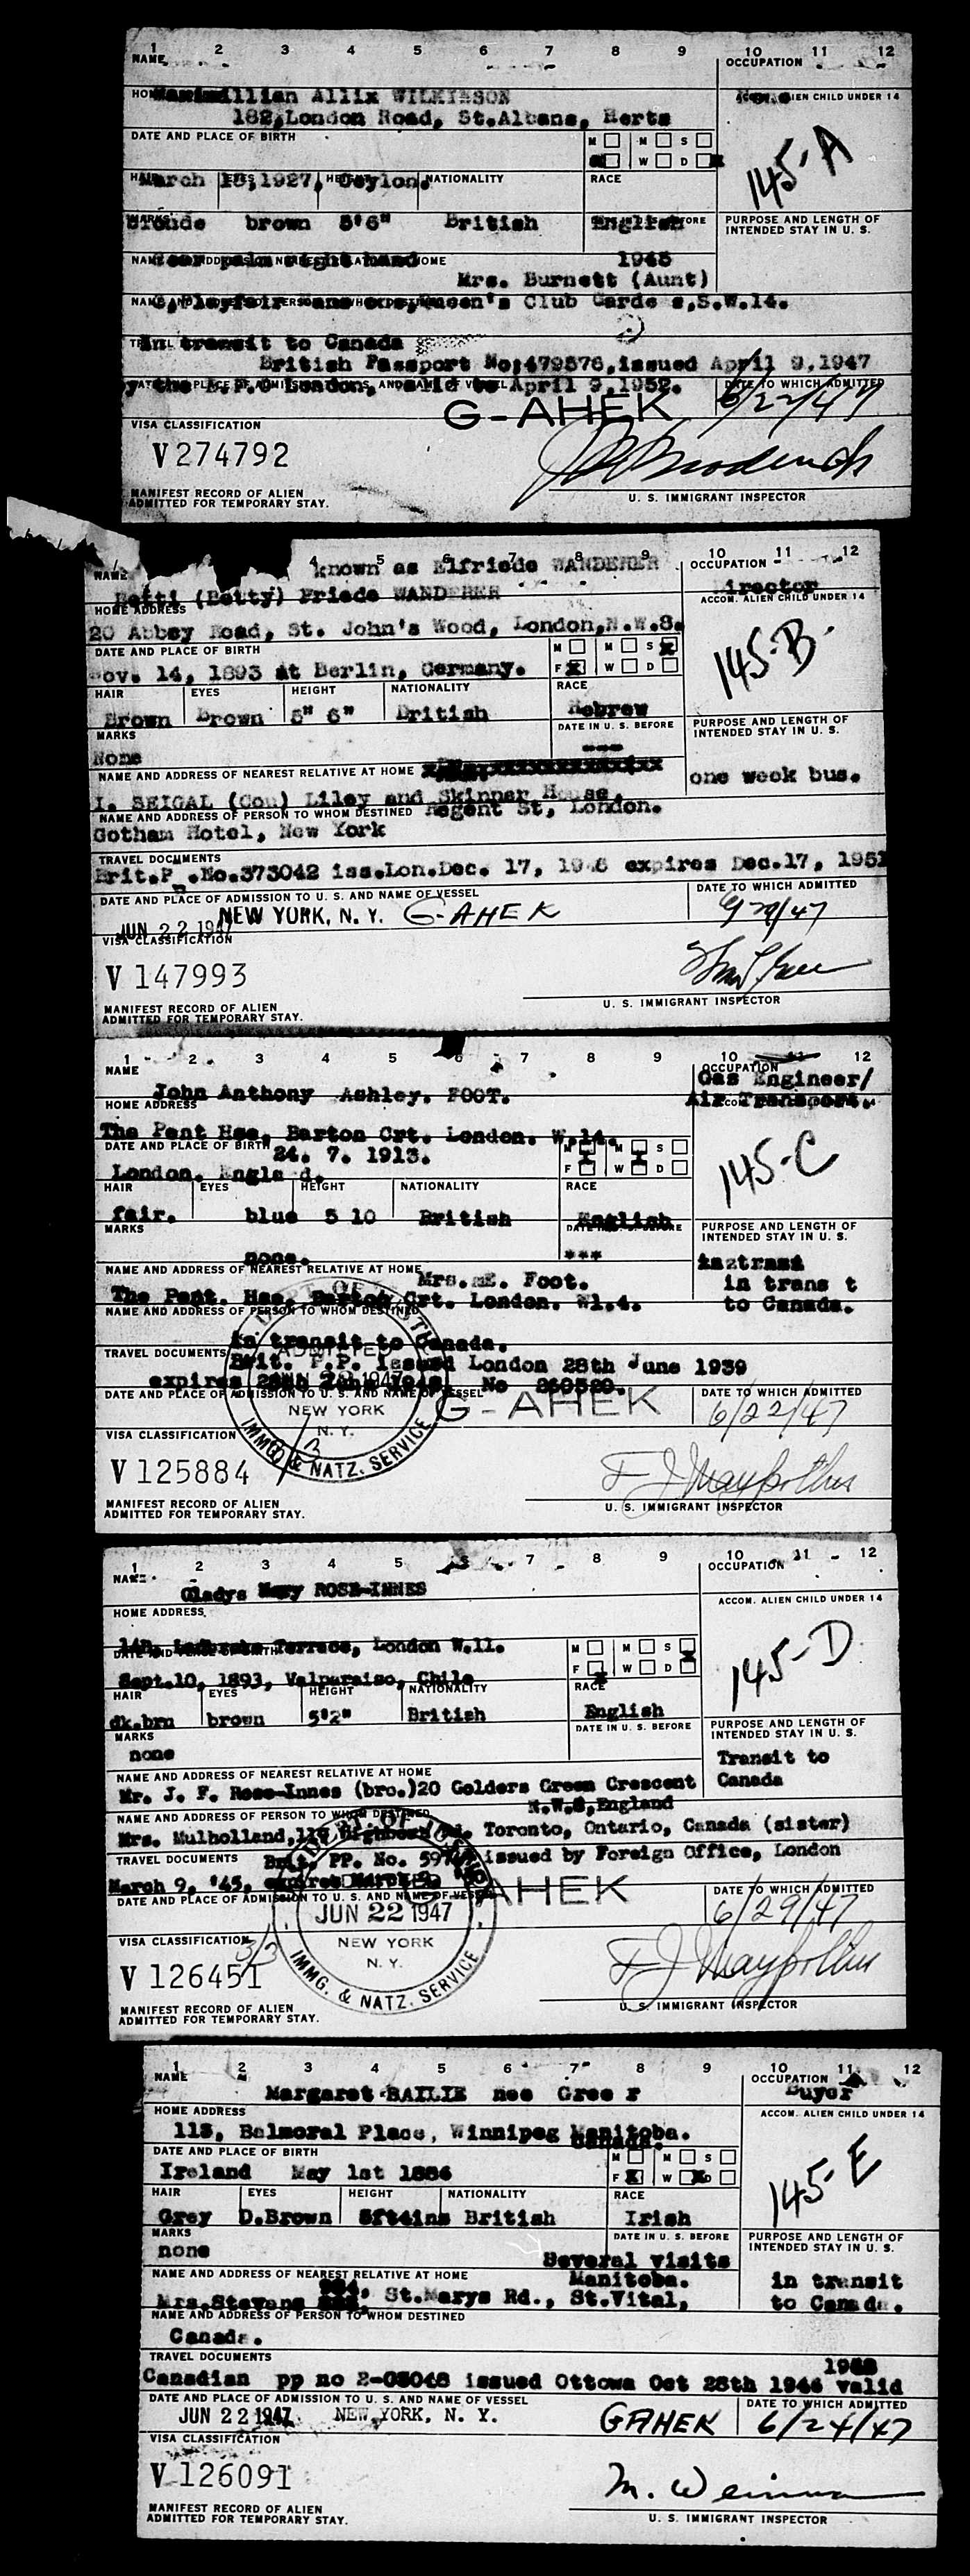 1 2 3 4 5 6 7 8 9 10 11 12
NAME OCCUPATION
HOME
Maximillian Allix WILKINSON ALIEN CHILD UNDER 14
182,London Road, St.Albans, Herts
DATE AND PLACE OF BIRTH M M S
W D
145-A
March 18,1927, Ceylon. NATIONALITY RACE
Blonde brown 5'6" British English PURPOSE AND LENGTH OF
INTENDED STAY IN U. S.
Scar palm right hand 1945
Mrs. Burnett (Aunt)
Queen's Club Garde s,S.W.14.
In transit to Canada
British Passport No:479576,issued April 9,1947
by the London, April 9,1952. DATE TO WHICH ADMITTED
G-AHEK 6/22/47
VISA CLASSIFICATION
V 274792
MANIFEST RECORD OF ALIEN
ADMITTED FOR TEMPORARY STAY.
U. S. IMMIGRANT INSPECTOR
4 5 6 7 8 9 10 11 12
NAME known as Elfriede WANDERER OCCUPATION
Betti (Betty) Friede WANDERER Director
HOME ADDRESS ACCOM. ALIEN CHILD UNDER 14
20 Abbey Road, St. John's Wood, London,N.W.8.
DATE AND PLACE OF BIRTH M M S
ov. 14, 1893 at Berlin, Germany. F X W D
145-B
HAIR EYES HEIGHT NATIONALITY RACE
Brown Brown 5" 6" British Hebrew
MARKS DATE IN U. S. BEFORE PURPOSE AND LENGTH OF
INTENDED STAY IN U. S.
None ---
NAME AND ADDRESS OF NEAREST RELATIVE AT HOME one week bus.
I. SEIGAL (Cou) Liley and Skinner House,
NAME AND ADDRESS OF PERSON TO WHOM DESTINED Regent St, London.
Gotham Hotel, New York
TRAVEL DOCUMENTS
Brit.P .No.373042 iss.Lon.Dec. 17, 19 6 expires Dec.17, 1951
DATE AND PLACE OF ADMISSION TO U. S. AND NAME OF VESSEL DATE TO WHICH ADMITTED
JUN 22 1947 NEW YORK, N. Y. G-AHEK
VISA CLASSIFICATION
V 147993
MANIFEST RECORD OF ALIEN
ADMITTED FOR TEMPORARY STAY.
U. S. IMMIGRANT INSPECTOR
1 2 3 4 5 6 7 8 9 10 11 12
NAME OCCUPATION
Gas Engineer/
John Anthony Ashley. FOOT. Air Transport.
HOME ADDRESS
The Pent Hse, Barton Crt. London. W.14.
DATE AND PLACE OF BIRTH 24. 7. 1913. M M S
London. Engla d. F W D
145-C
HAIR EYES HEIGHT NATIONALITY RACE
fair. blue 5 10 British English
MARKS PURPOSE AND LENGTH OF
INTENDED STAY IN U. S.
none. ***
NAME AND ADDRESS OF NEAREST RELATIVE AT HOME
Mrs. E. Foot. in trans t
The Pent. Hse, Barton Crt. London. W1.4. to Canada.
NAME AND ADDRESS OF PERSON TO WHOM DESTINED
in transit to Canada.
TRAVEL DOCUMENTS Brit. P.P. issued London 28th June 1939
expires No 260520.
DATE AND PLACE OF ADMISSION TO U. S. AND NAME OF VESSEL DATE TO WHICH ADMITTED
ADMITTED 1947 NEW YORK N. Y. IMMG. & NATZ. SERVICE
G-AHEK 6/22/47
VISA CLASSIFICATION
V 125884
MANIFEST RECORD OF ALIEN
ADMITTED FOR TEMPORARY STAY.
U. S. IMMIGRANT INSPECTOR
1 2 3 4 5 6 7 8 9 10 11 12
NAME OCCUPATION
Gladys Mary ROSE-INNES
HOME ADDRESS ACCOM. ALIEN CHILD UNDER 14
Terrace, London W.11. M M S
Sept.10, 1893, Valparaiso, Chile F W D
145-D
HAIR EYES HEIGHT NATIONALITY RACE
dk.brn brown 5'2" British English
MARKS DATE IN U. S. BEFORE PURPOSE AND LENGTH OF
INTENDED STAY IN U. S.
none Transit to
Canada
NAME AND ADDRESS OF NEAREST RELATIVE AT HOME
Mr. J. F. Rose-Innes (bro.)20 Golders Green Crescent
NAME AND ADDRESS OF PERSON TO WHOM DESTINED England
Mrs. Mulholland, Toronto, Ontario, Canada (sister)
TRAVEL DOCUMENTS Brit. PP. No. issued by Foreign Office, London
March 9, '45,
DATE AND PLACE OF ADMISSION TO U. S. AND NAME OF VESSEL DATE TO WHICH ADMITTED
JUN 22 1947 NEW YORK N. Y. IMMG. & NATZ. SERVICE
AHEK 6/29/47
VISA CLASSIFICATION 3/3
V 126451
MANIFEST RECORD OF ALIEN
ADMITTED FOR TEMPORARY STAY.
U. S. IMMIGRANT INSPECTOR
1 2 3 4 5 6 7 8 9 10 11 12
NAME OCCUPATION
Margaret BAILIE nee Gree r Buyer
HOME ADDRESS ACCOM. ALIEN CHILD UNDER 14
113, Balmoral Place, Winnipeg Manitoba.
Canada.
DATE AND PLACE OF BIRTH M M S
Ireland May 1st 1886 F X W X D
145-E
HAIR EYES HEIGHT NATIONALITY RACE
Grey D.Brown 5ft4ins British Irish
MARKS DATE IN U. S. BEFORE PURPOSE AND LENGTH OF
INTENDED STAY IN U. S.
none Several visits
NAME AND ADDRESS OF NEAREST RELATIVE AT HOME Manitoba. in transit
Mrs.Stevens St.Marys Rd., St.Vital, to Canada.
NAME AND ADDRESS OF PERSON TO WHOM DESTINED
Canada.
TRAVEL DOCUMENTS
Canadian pp no 2-05048 issued Ottowa Oct 28th 1946 valid
DATE AND PLACE OF ADMISSION TO U. S. AND NAME OF VESSEL DATE TO WHICH ADMITTED
JUN 22 1947 NEW YORK, N. Y. GAHEK 6/24/47
VISA CLASSIFICATION
V 126091
M. Weinman
MANIFEST RECORD OF ALIEN
ADMITTED FOR TEMPORARY STAY.
U. S. IMMIGRANT INSPECTOR